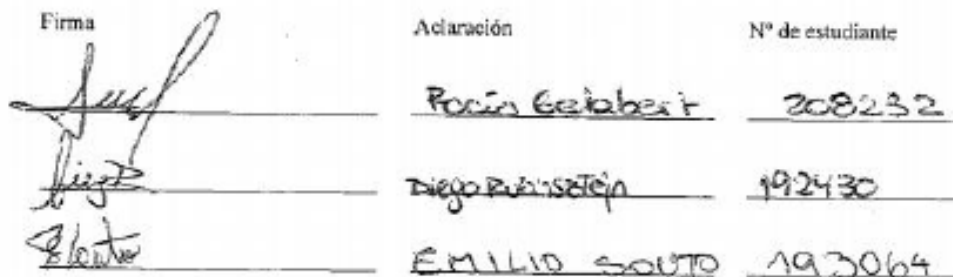 Firma Aclaración Nº de estudiante
Rocío Gelabert 208232
Diego Rubinsztejn 192430
EMILIO SOUTO 193064